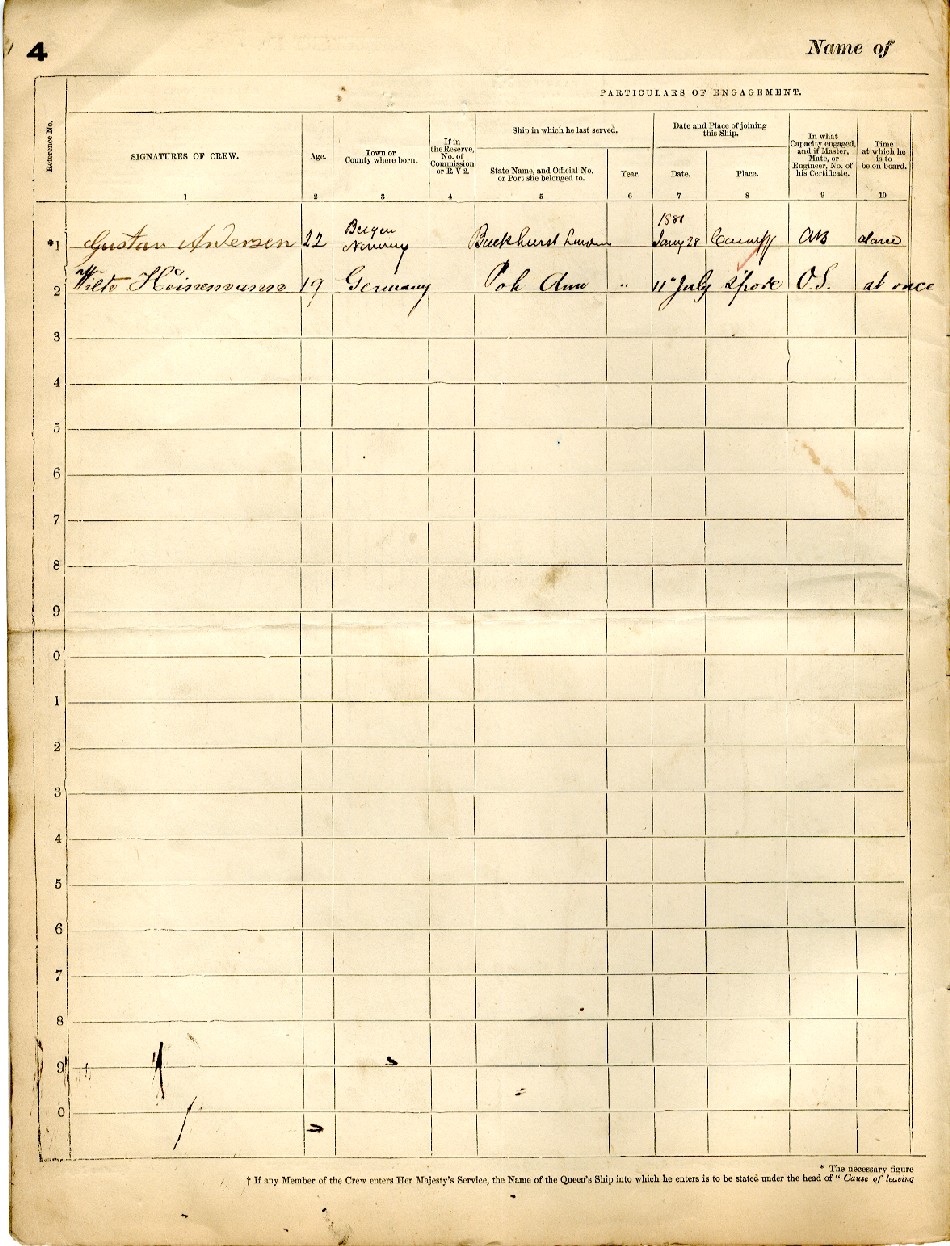 4
Name of
PARTICULARS OF ENGAGEMENT.
Reference No.
SIGNATURES OF CREW.
Age.
Town or
County where born.
If in
the Reserve,
No. of
Commission
or R V 2.
Ship in which he last served.
State Name, and Official No.
or Port she belonged to.
Year.
Date and Place of joining
this Ship.
Date.
Place.
In what
Capacity engaged,
and if Master,
Mate, or
Engineer, No. of
his Certificate.
Time
at which he
is to
be on board.
1 2 3 4 5 6 7 8 9 10
*1 Gustav Andersen 22 Bergen Norway Buckhurst London 1881 Jany 28 Cardiff AB at once
2 Heinemann 19 Germany Ann " 11th July O.S. at once
3
4
5
6
7
8
9
0
1
2
3
4
5
6
7
8
9
0
* The necessary figure
† If any Member of the Crew enters Her Majesty's Service, the Name of the Queen's Ship into which he enters is to be stated under the head of " Cause of leaving